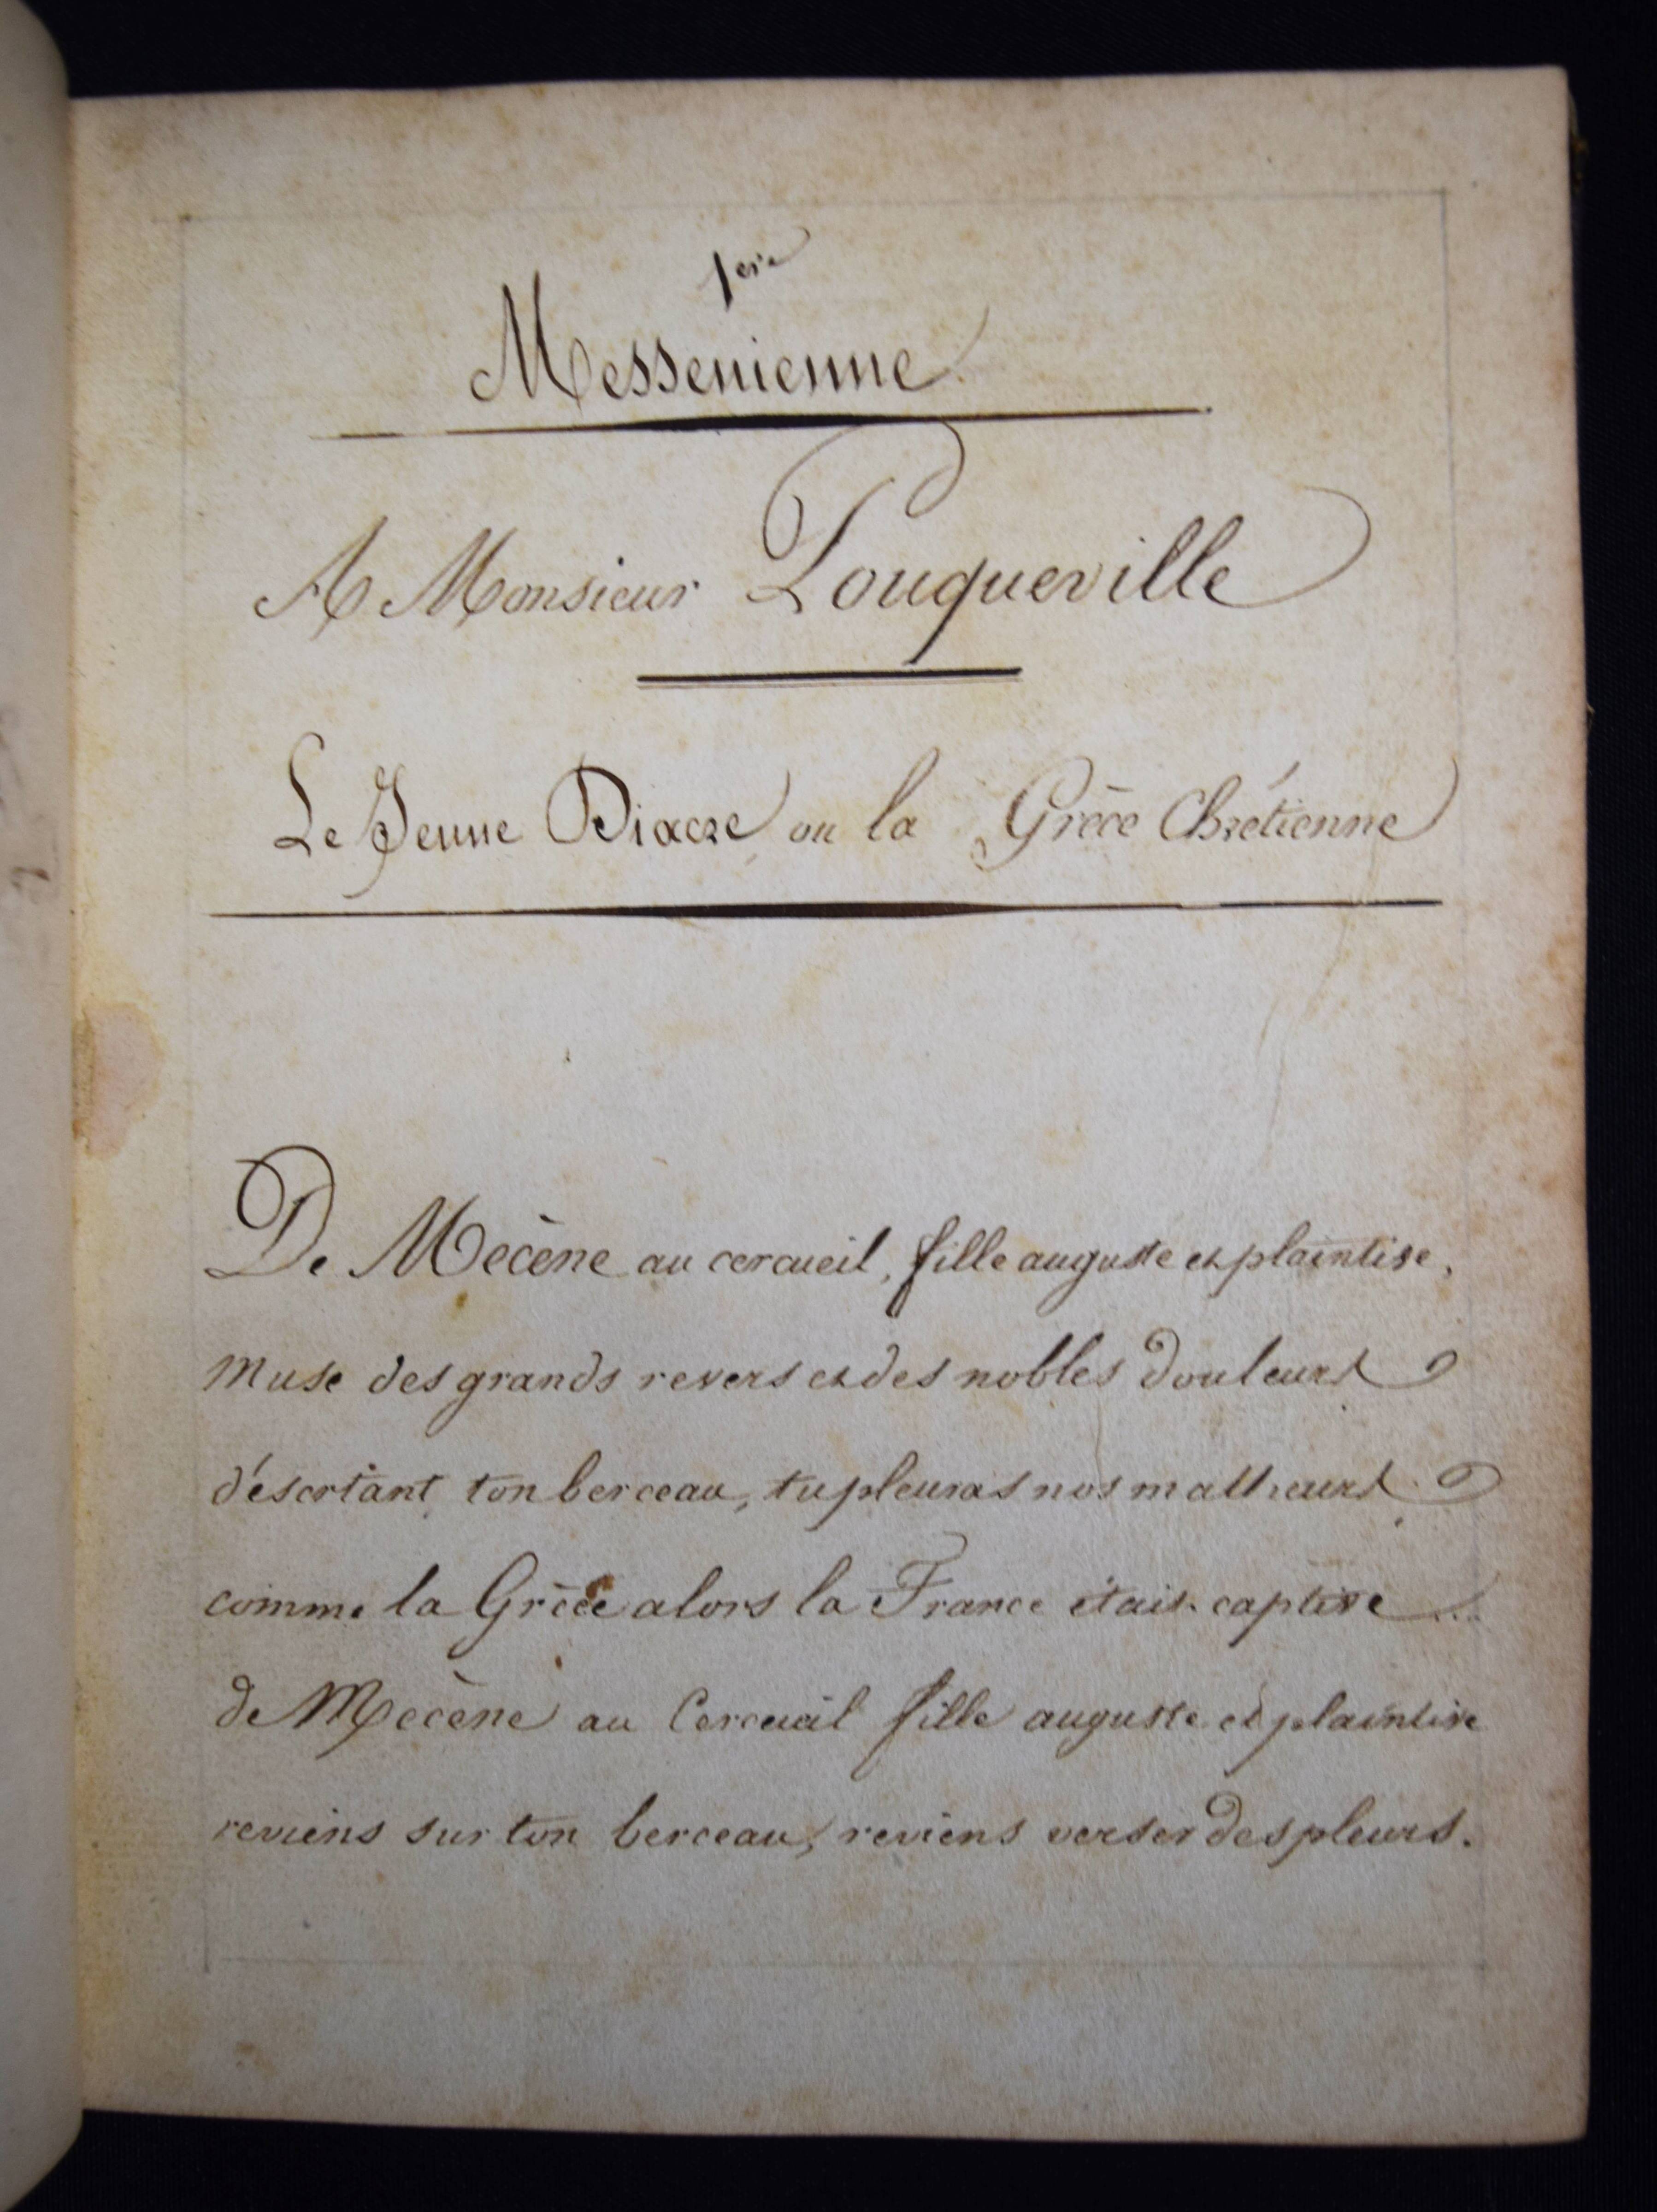 1ere
Messenienne
A Monsieur Pouqueville
Le Jeune Diacre ou la Grèce Chrétienne
De Mecène au cercueil, fille auguste et plaintive,
Muse des grands revers et des nobles douleurs
désertant ton berceau, tu pleuras nos malheurs.
comme la Grèce alors la France était captive
de Mecène au Cercueil fille auguste et plaintive
reviens sur ton berceau, reviens verser des pleurs.